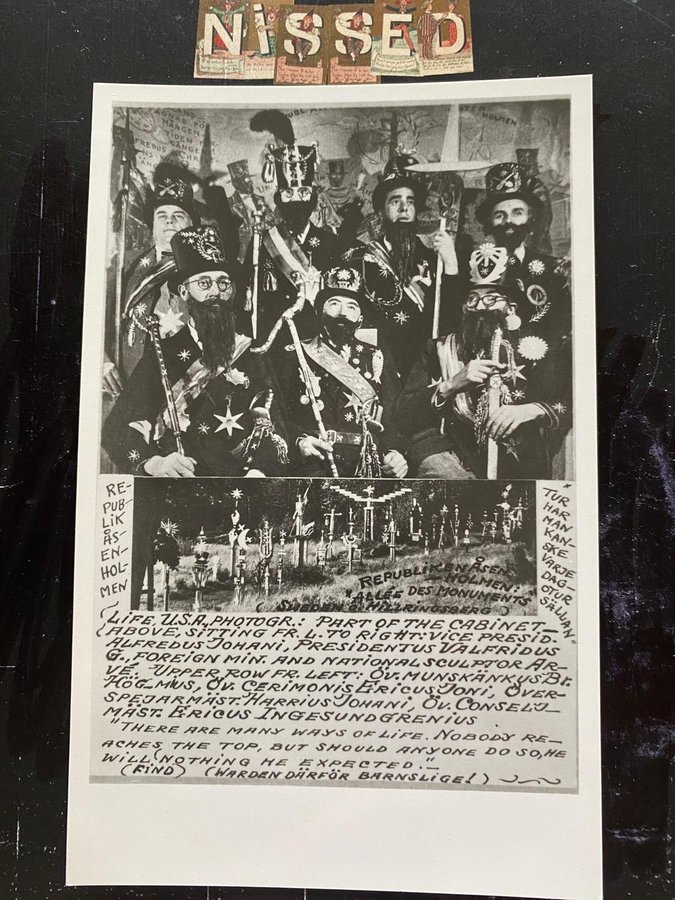 NiSSED
HOLMEN
RE-
PUB-
LiK
ÅS-
EN-
HOL-
MEN
"TUR
HAR
MAN
KAN-
SKE
VARJE
DAG-
OTUR
SÄLLAN"
REPUBLIKEN ÅSEN-
HOLMEN:
"ALLÉE DES MONUMENTS"
(SWEDEN G. HILLRINGSBERG)
(LIFE, U.S.A, PHOTOGR.: PART OF THE CABINET-
ABOVE, SITTING FR. L. TO RIGHT: VICE PRESID.
ALFREDUS JOHANI, PRESIDENTUS VALFRIDUS
G., FOREIGN MIN. AND NATIONALSCULPTOR AR-
VE. UPPER ROW FR. LEFT: ÖV. MUNSKÄNKUS BR.
HÖG-MUS, ÖV. CERIMONIS ERICUS JONI, ÖVER-
SPEJARMÄST. HARRIUS JOHANI, ÖV. CONSELJ-
MÄST. ERICUS INGESUNDGRENIUS
"THERE ARE MANY WAYS OF LIFE. NOBODY RE-
ACHES THE TOP, BUT SHOULD ANYONE DO SO, HE
WILL NOTHING HE EXPECTED."-
(FIND) (WARDEN DÄRFÖR BARNSLIGE!)